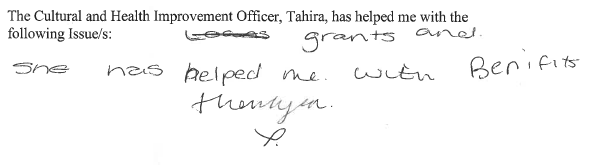 The Cultural and Health Improvement Officer, Tahira, has helped me with the
following Issue/s: grants and
she has helped me. with Benifits
thankyou.